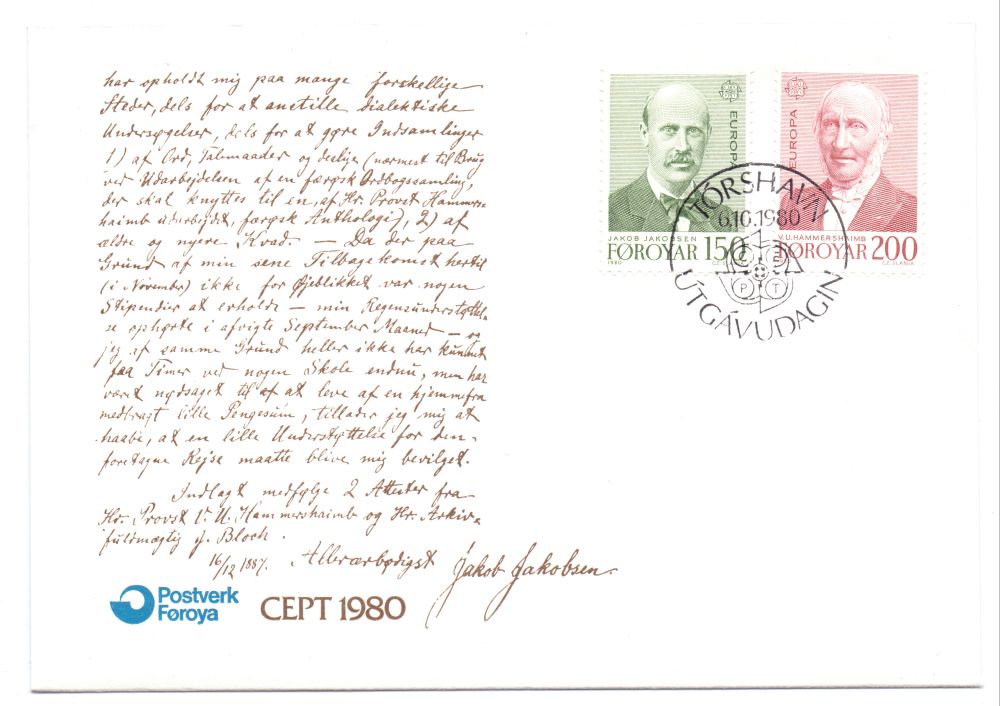 har opholdt mig paa mange forskellige
Steder, dels for at anstille dialektiske
Undersøgelser, dels for at gøre Indsamlinger
1) af Ord, Talemaader og deslige (nærmest til Brug
ved Udarbejdelsen af en færøsk Ordbogssamling,
der skal knyttes til en, af Hr. Provst Hammers-
haimb udarbejdet, færøsk Anthologi), 2) af
ældre og nyere Kvad. — Da der paa
Grund af min sene Tilbagekomst hertil
(i November) ikke for Øjeblikket var nogen
Stipendier at erholde — min Regensunderstøttel-
se ophørte i afvigte September Maaned — og
jeg af samme Grund heller ikke har kunnet
faa Timer ved nogen Skole endnu, men har
været nødsaget til at leve af en hjemmefra
medbragt lille Pengesum, tillader jeg mig at
haabe, at en lille Understøttelse for den
foretagne Rejse maatte blive mig bevilget.
Indlagt medfølge 2 Attester fra
Hr. Provst V. U. Hammershaimb og Hr. Arkiv-
fuldmægtig J. Bloch.
16/12 1887. Allerærbødigst Jakob Jakobsen.
Postverk
Føroya
CEPT 1980
EUROPA
JAKOB JAKOBSEN
1980
FØROYAR 150
CZ.SLANIA
EUROPA
V.U. HAMMERSHAIMB
FØROYAR 200
CZ.SLANIA
TÓRSHAVN
6.10.1980
C E P T
ÚTGÁVUDAGIN